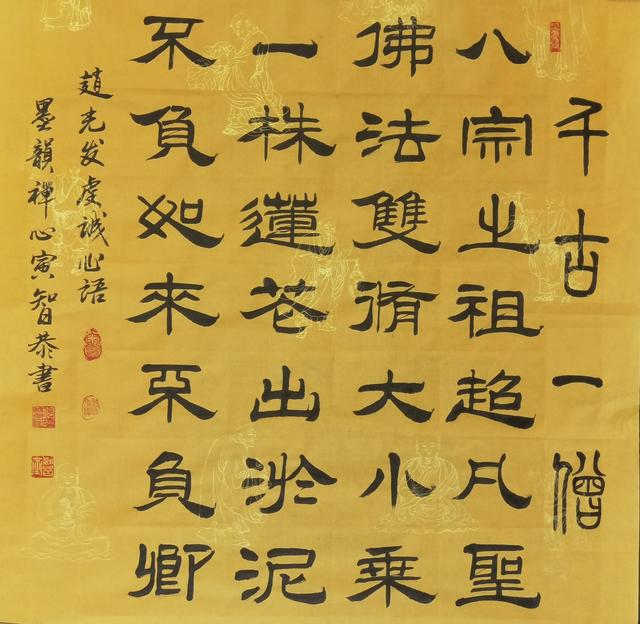 千古一僧
八宗之祖超凡聖
佛法雙脩大小乘
一株蓮花出淤泥
不負如來不負卿
趙发虔誠心語
墨韻禪心寅智恭書